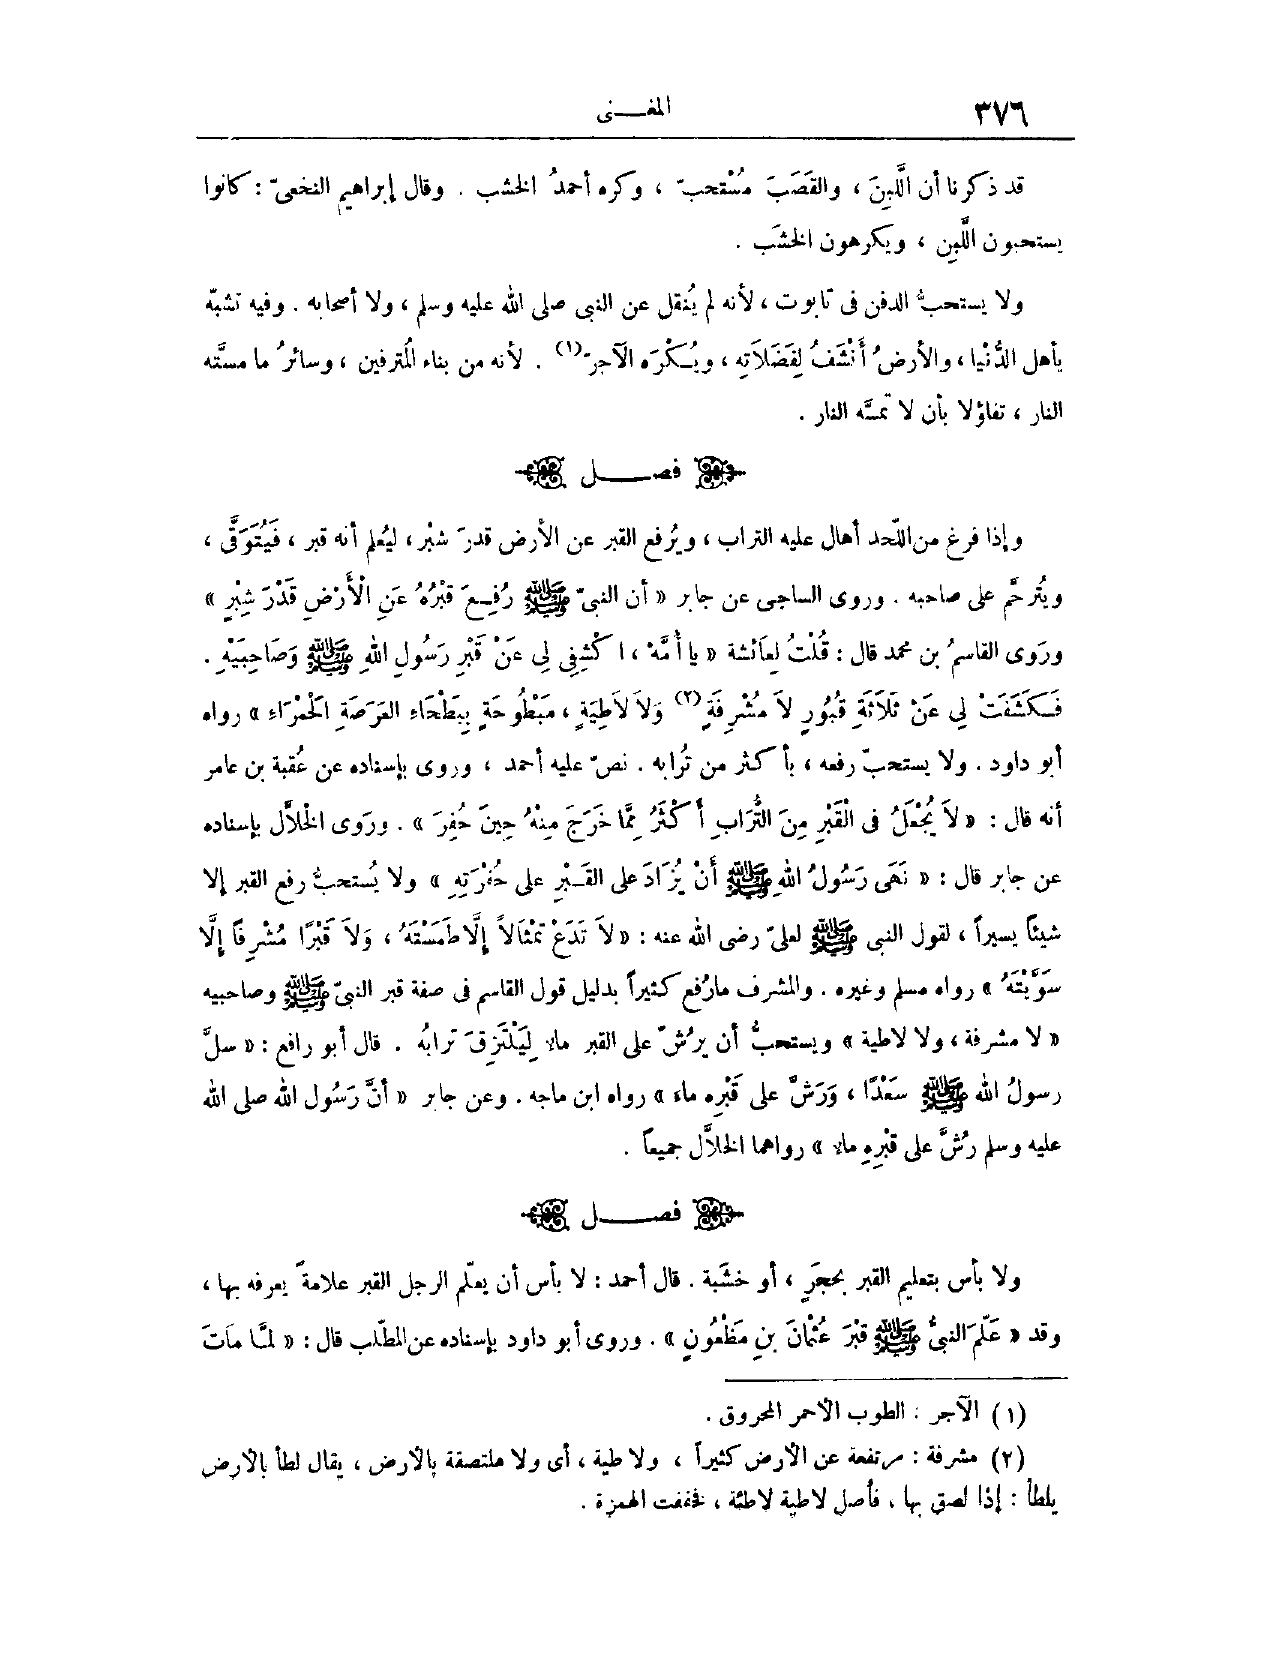 ٣٧٦
المغـــنى
قد ذكرنا أن اللَّبِنَ ، والقَصَبَ مُسْتحبّ ، وكره أحمدُ الخشب . وقال إبراهيم النخعىّ : كانوا
يستحبون اللَّبِن ، ويكرهون الخشَب .
ولا يستحبُّ الدفن فى تابوت ، لأنه لم يُنقل عن النبى صلى الله عليه وسلم ، ولا أصحابه . وفيه تشبّه
بأهل الدُّنْيا ، والأرضُ أَنْشَفُ لِفَضَلَاتِهِ ، ويُـكْرَه الآجرّ (١) . لأنه من بناء المُترفين ، وسائرُ ما مسَّته
النار ، تفاؤلا بأن لا تمسَّه النار .
فصـــل
وإذا فرغ من اللّحد أهال عليه التراب ، ويُرفع القبر عن الأرض قدرَ شبْر ، ليُعلم أنه قبر ، فَيُتَوَقَّى ،
ويُترحَّم على صاحبه . وروى الساجى عن جابر « أن النبىّ ﷺ رُفِـعَ قَبْرُهُ عَنِ الْأَرْضِ قَدْرَ شِبْرٍ »
وروى القاسمُ بن محمد قال : قُلْتُ لِعائشة « يا أُمَّهْ ، اكْشِفِى لِى عَنْ قَبْرِ رَسُولِ اللهِ ﷺ وَصَاحِبَيْهِ .
فَـكَشَفَتْ لِى عَنْ ثَلَاثَةِ قُبُورٍ لاَ مُشْرِفَةٍ (٢) وَلاَ لاَطِيَةٍ ، مَبْطُوحَةٍ بِبَطْحَاءِ العَرَصَةِ الْحَمْرَاءِ » رواه
أبو داود . ولا يستحبّ رفعه ، بأكثر من تُرابه . نصّ عليه أحمد ، وروى بإسناده عن عُقبة بن عامر
أنه قال : « لاَ يُجْعَلُ فى الْقَبْرِ مِنَ التُّرَابِ أَكْثَرُ مِمَّا خَرَجَ مِنْهُ حِينَ حُفِرَ » . وروى الخلاَّل بإسناده
عن جابر قال : « نَهَى رَسُولُ اللهِ ﷺ أَنْ يُزَادَ على القَـبْرِ على حُفْرَتِهِ » ولا يُستحبُّ رفع القبر إلا
شيئاً يسيراً ، لقول النبى ﷺ لعلىّ رضى الله عنه : « لاَ تَدَعْ تِمْثَالاً إِلَّا طَمَسْتَهُ ، وَلاَ قَبْرًا مُشْرِفًا إلَّا
سَوَّيْتَهُ » رواه مسلم وغيره . والمشرف ما رُفع كثيراً بدليل قول القاسم فى صفة قبر النبىّ ﷺ وصاحبيه
« لا مشرفة ، ولا لاطية » ويستحبُّ أن يرُشّ على القبر ماء لِيَلْتَزِقَ ترابُه . قال أبو رافع : « سلَّ
رسولُ الله ﷺ سَعْدًا ، وَرَشَّ على قَبْرِه ماءَ » رواه ابن ماجه . وعن جابر « أنَّ رَسُول الله صلى الله
عليه وسلم رُشَّ على قبْرِهِ ماء » رواهما الخلاَّل جميعاً .
فصـــل
ولا بأس بتعليم القبر بحجَرٍ ، أو خشَبة . قال أحمد : لا بأس أن يعلّم الرجل القبر علامةً يعرفه بها ،
وقد « عَلّمَ النبىُّ ﷺ قبْرَ عُثْمَانَ بنِ مَظْعُونٍ » . وروى أبو داود بإسناده عن المطّلب قال : « لمـَّا مَاتَ
(١) الآجر : الطوب الأحمر المحروق .
(٢) مشرفة : مرتفعة عن الأرض كثيراً ، ولا طية ، أى ولا ملتصقة بالأرض ، يقال لطأ بالأرض
يلطأ : إذا لصق بها ، فأصل لاطية لاطئة ، فخففت الهمزة .